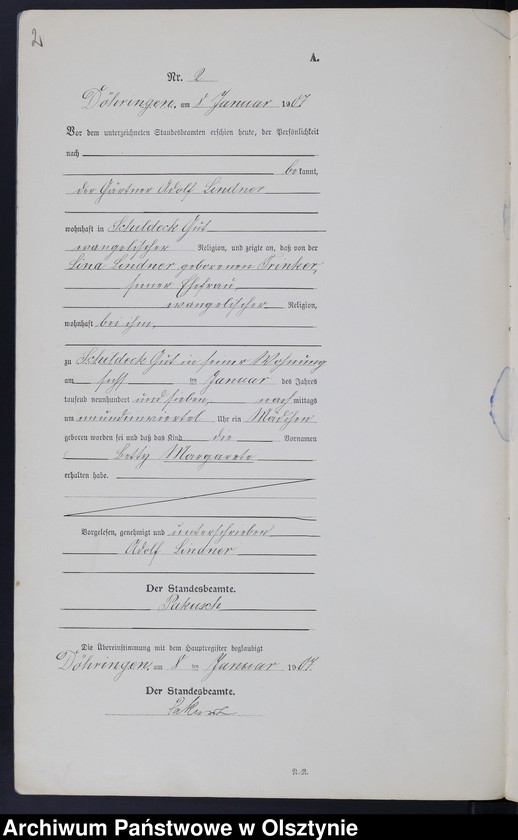 2
A.
Nr. 2
Döhringen, am 8 Januar 1907
Vor dem unterzeichneten Standesbeamten erschien heute, der Persönlichkeit
nach
bekannt,
der Gärtner Adolf Lindner
wohnhaft in Schildeck Gut
evangelischer Religion, und zeigte an, daß von der
Lina Lindner geborenen Trinker,
seiner Ehefrau,
evangelischer Religion,
wohnhaft bei ihm,
zu Schildeck Gut in seiner Wohnung
am sechs ten Januar des Jahres
tausend neunhundert und sieben, nach mittags
um neuneinviertel Uhr ein Mädchen
geboren worden sei und daß das Kind die Vornamen
Betty Margarete
erhalten habe.
Vorgelesen, genehmigt und unterschrieben
Adolf Lindner
Der Standesbeamte.
Die Übereinstimmung mit dem Hauptregister beglaubigt
Döhringen, am 8 ten Januar 1907.
Der Standesbeamte.
Archiwum Państwowe w Olsztynie